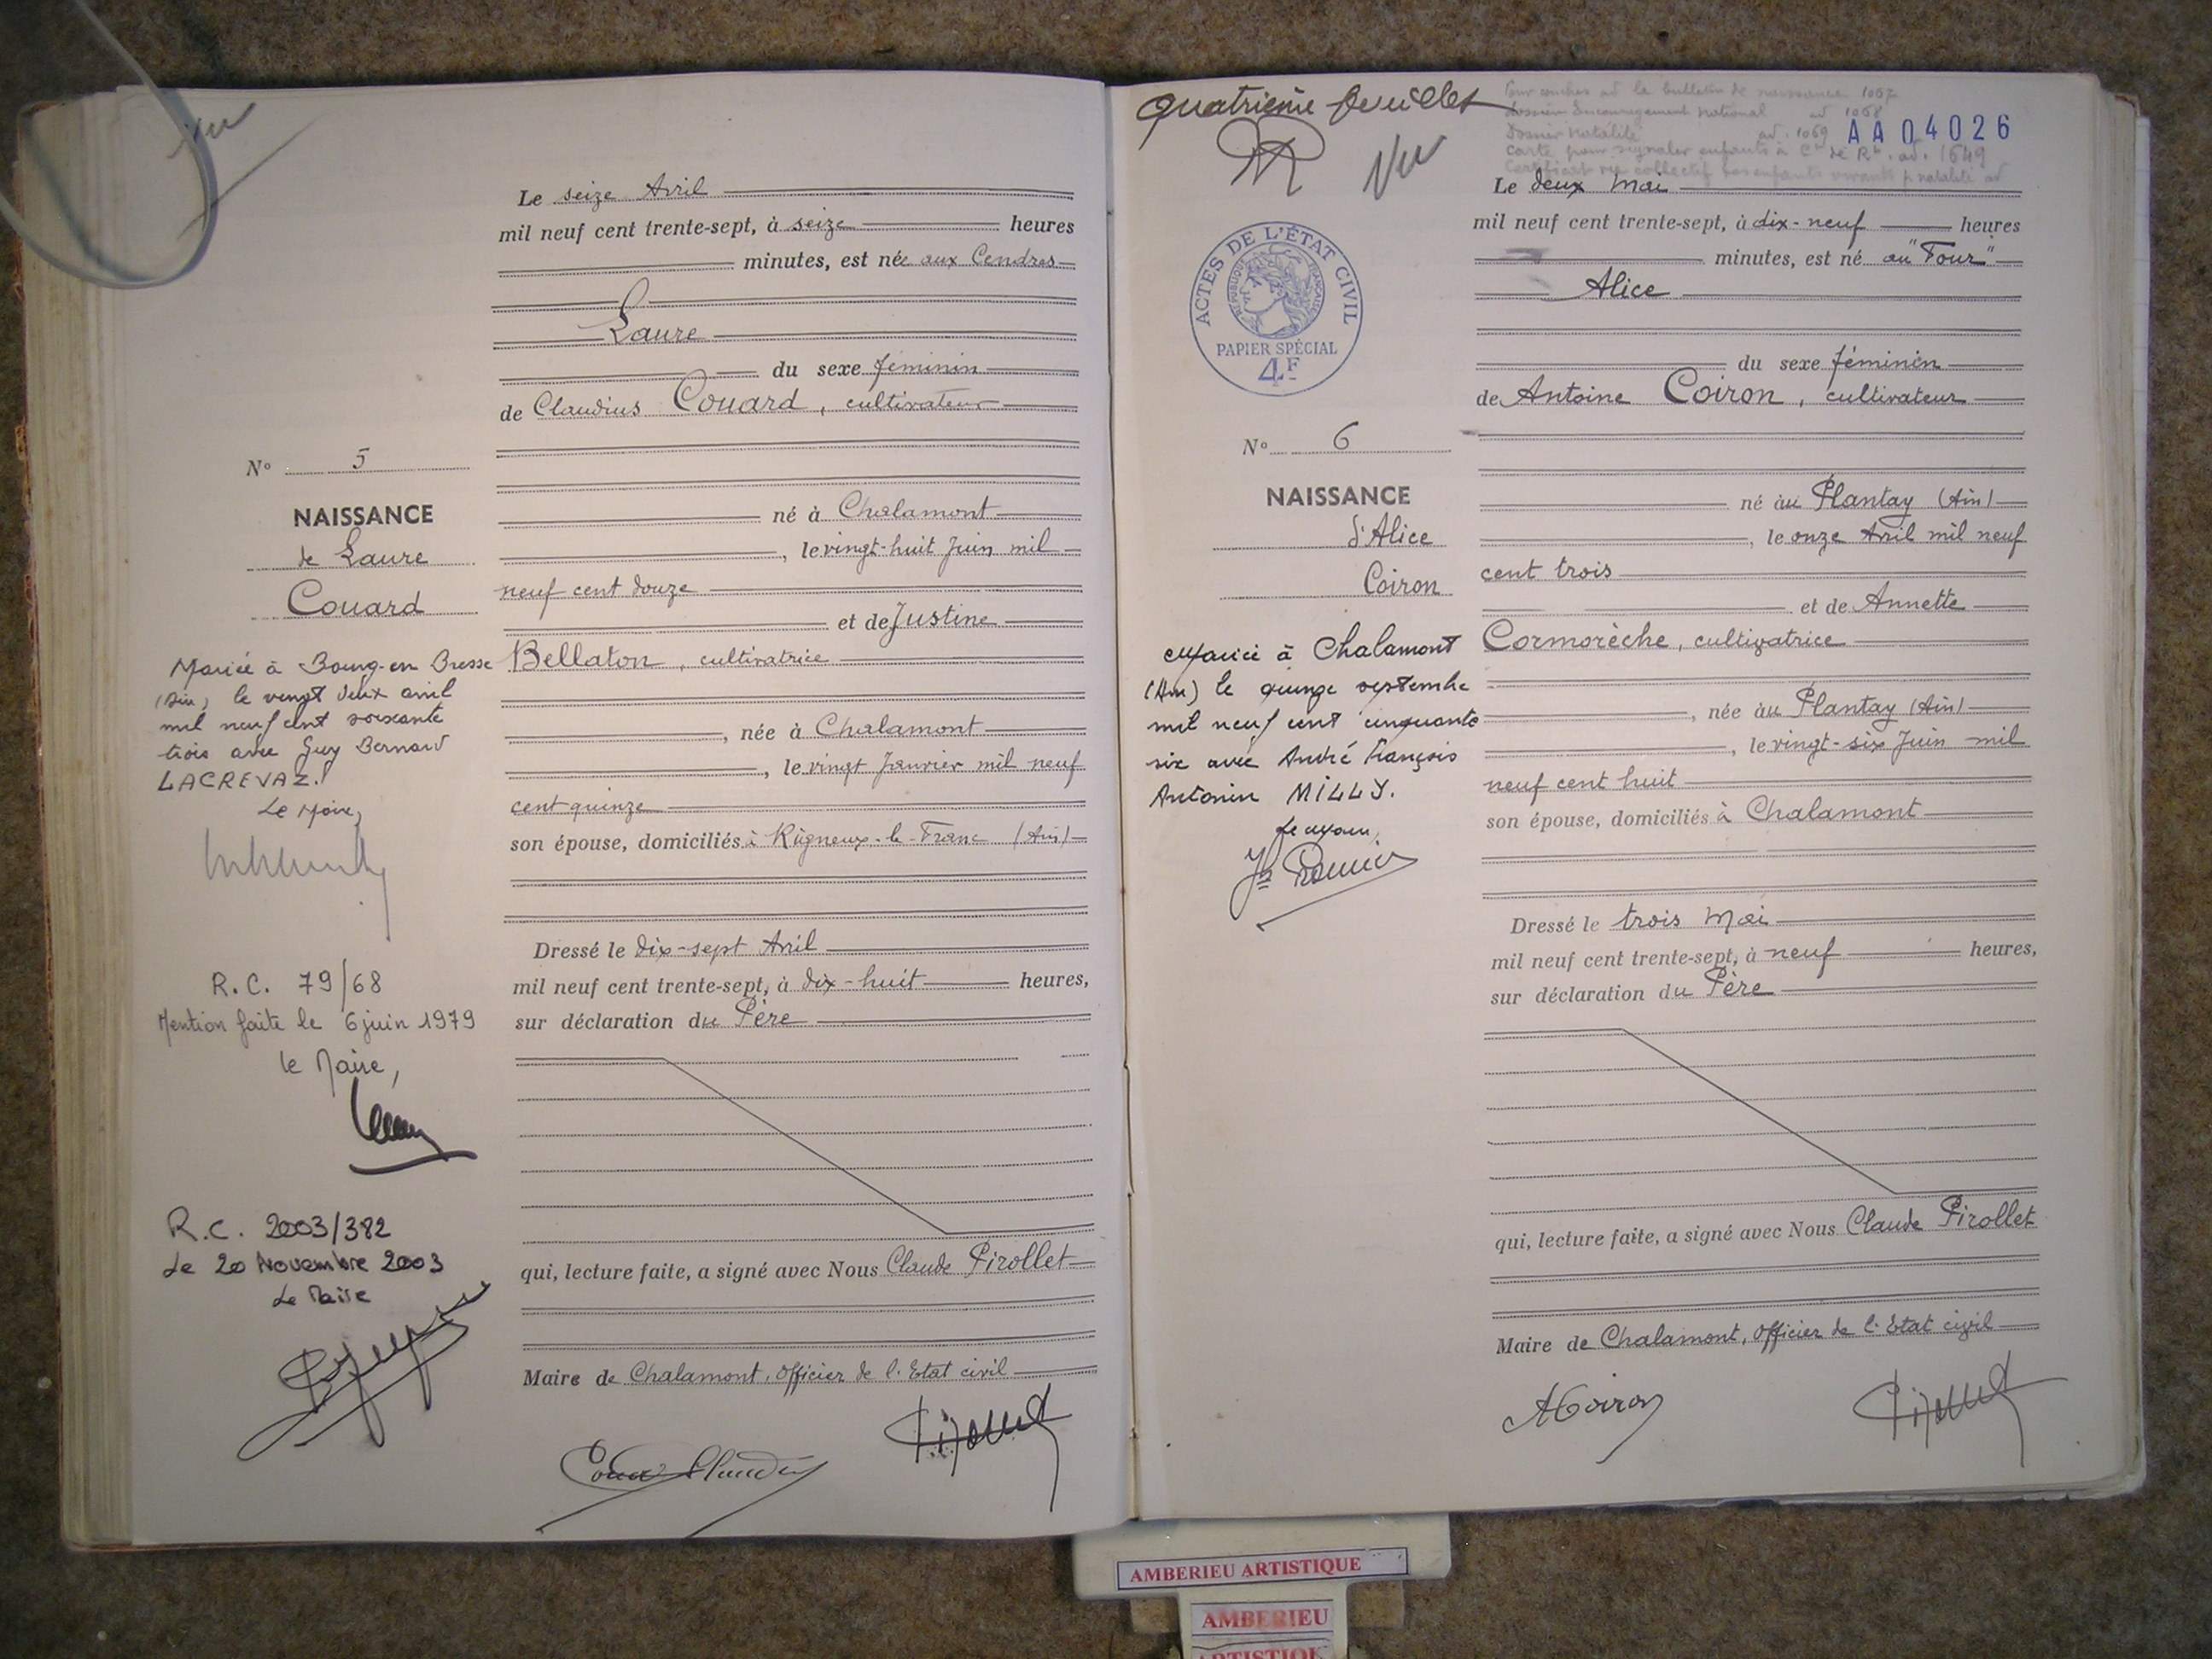 Vu
Le seize Avril
mil neuf cent trente-sept, à seize heures
minutes, est née aux Cendres
Laure
du sexe féminin
de Claudius Couard, cultivateur
né à Chalamont
, le vingt-huit Juin mil
neuf cent douze
et de Justine
Bellaton, cultivatrice
, née à Chalamont
, le vingt Janvier mil neuf
cent quinze
son épouse, domiciliés à Rigneux-le-Franc (Ain)
Dressé le dix-sept Avril
mil neuf cent trente-sept, à dix-huit heures,
sur déclaration du Père
qui, lecture faite, a signé avec Nous Claude Pirollet
Maire de Chalamont, Officier de l'Etat civil
Couard Claudius
Pirollet
N° 5
NAISSANCE
de Laure
Couard
Mariée à Bourg-en-Bresse
(Ain) le vingt deux avril
mil neuf cent soixante
trois avec Guy Bernard
LACREVAZ.
Le Maire,
R.C. 79/68
Mention faite le 6 juin 1979
le Maire,
R.C. 2003/382
Le 20 Novembre 2003
Le Maire
Quatrième feuillet
Vu
Pour couches ad le bulletin de naissance 1067
Dossier Encouragement National ad 1068
Dossier Natalité ad. 1069
AA04026
carte pour signaler enfants à de ad. 1649
ACTES DE L'ÉTAT CIVIL
RÉPUBLIQUE FRANÇAISE
PAPIER SPÉCIAL
4F
Le deux Mai
mil neuf cent trente-sept, à dix-neuf heures
minutes, est né au "Four"
Alice
du sexe féminin
de Antoine Coiron, cultivateur
né au Plantay (Ain)
, le onze Avril mil neuf
cent trois
et de Annette
Cormorèche, cultivatrice
, née au Plantay (Ain)
, le vingt-six Juin mil
neuf cent huit
son épouse, domiciliés à Chalamont
Dressé le trois Mai
mil neuf cent trente-sept, à neuf heures,
sur déclaration du Père
qui, lecture faite, a signé avec Nous Claude Pirollet
Maire de Chalamont, Officier de l'Etat civil
ACoiron
Pirollet
N° 6
NAISSANCE
d'Alice
Coiron
Mariée à Chalamont
(Ain) le quinze septembre
mil neuf cent cinquante
six avec André François
Antonin MILLY.
Le Maire,
AMBERIEU ARTISTIQUE
AMBERIEU
ARTISTIQUE